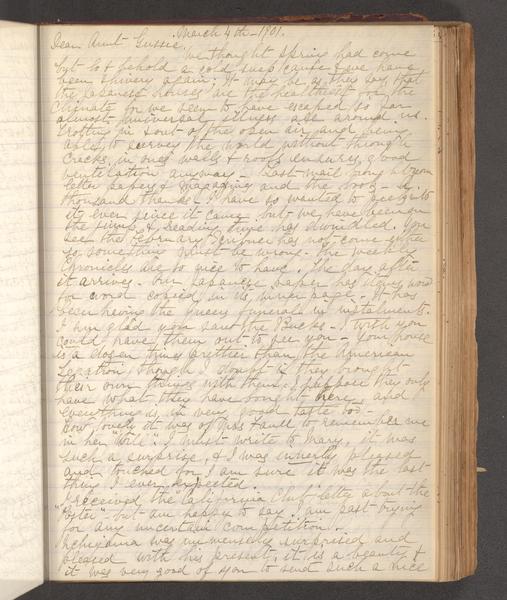 March 4th - 1901.
Dear Aunt Gussie,
We thought Spring had come
but lo & behold a cold snap came & we have
been shivery again. It may be as they say, that
the Japanese houses are the healthiest for the
climate for we seem to have escaped so far
almost universal illness all around us.
in sort of the open air, and being
able to survey the world without through
cracks in one's walls & roof ensures good
ventilation anyway - Last mail brought your
letter papers & magazine and the book - a
thousand thanks! I have so wanted to get to
it ever since it came but we have been on
the jump & reading time has dwindled. You
see the February Scribner has not come either
so something must be wrong. The weekly
Chronicles are so nice to have. The day after
it arrives - our Japanese paper has it word
for word copied in its inner page. It has
been having the Queen's funeral in instalments.
I am glad you saw the Bucks - I wish you
could have them out to see you - your house
is a dozen times prettier than the American
Legation, though I doubt if they brought
their own things with them. I suppose they only
have what they have bought here, and
everything is in very good taste too -
How lovely it was of Miss Faull to remember me
in her "Will". I must write to Mary, it was
such a surprise, & I was inwardly pleased
and touched for I am sure it was the last
thing I ever expected.
I received the California Club letter about the
"Poster" but am happy to say I am past trying
for any uncertain competition. -
Ichiyama was immensely surprised and
pleased with his present, it is a beauty &
it was very good of you to send such a nice